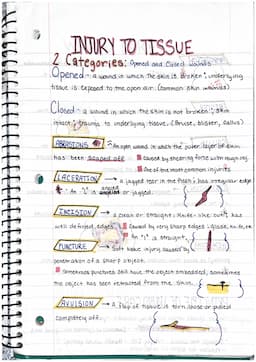 INJURY TO TISSUE
2 Categories: Opened and Closed Wounds
Opened - a wound in which the skin is broken; underlying
tissue is exposed to the open air. (Common skin wounds)
Closed - a wound in which the skin is not broken; skin
intact; trauma to underlying tissue. (Bruise, blister, callus)
ABRASIONS - An open wound in which the outer layer of skin
has been scraped off. Caused by shearing force with rough obj.
One of the most common injuries
LACERATION - a jagged tear in the flesh; has irregular edge
An "L" is angled or jagged.
INCISION - a clean or straight, knife-like cut; has
well defined edges. Caused by very sharp edges: glass, knife, etc.
An "I" is straight.
PUNCTURE - Soft tissue injury caused by
penetration of a sharp object.
Sometimes punctures still have the object embedded, sometimes
the object has been retracted from the skin.
AVULSION - A flap of tissue is torn loose or pulled
completely off.